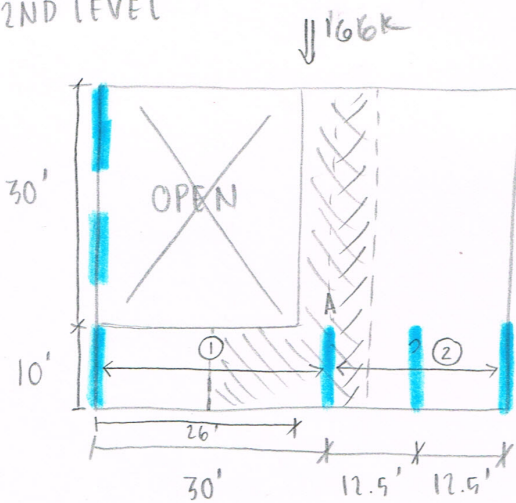 2ND LEVEL
166K
30'
OPEN
A
1
2
10'
26'
30'
12.5'
12.5'